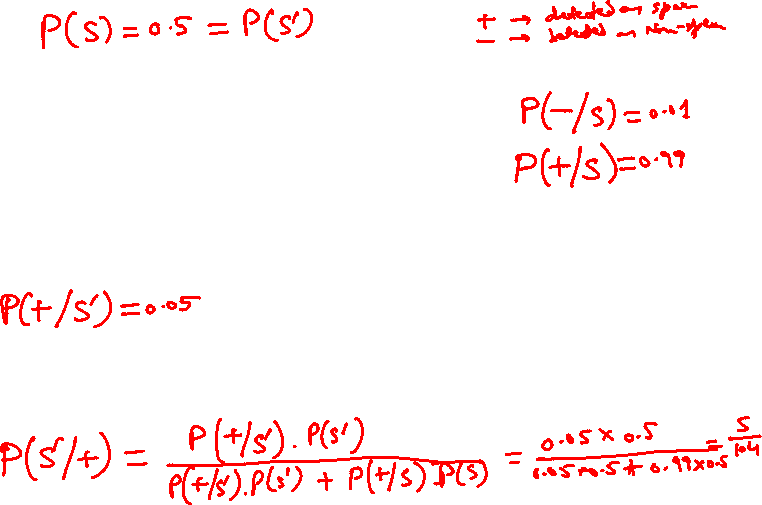 P(S) = 0.5 = P(S')
+ → detected as spam
− → detected as non-spam
P(−/S) = 0.01
P(+/S) = 0.99
P(+/S') = 0.05
P(S'/+) = P(+/S') . P(S') / P(+/S').P(S') + P(+/S) P(S) = 0.05 × 0.5 / 0.05 × 0.5 + 0.99×0.5 = 5/104